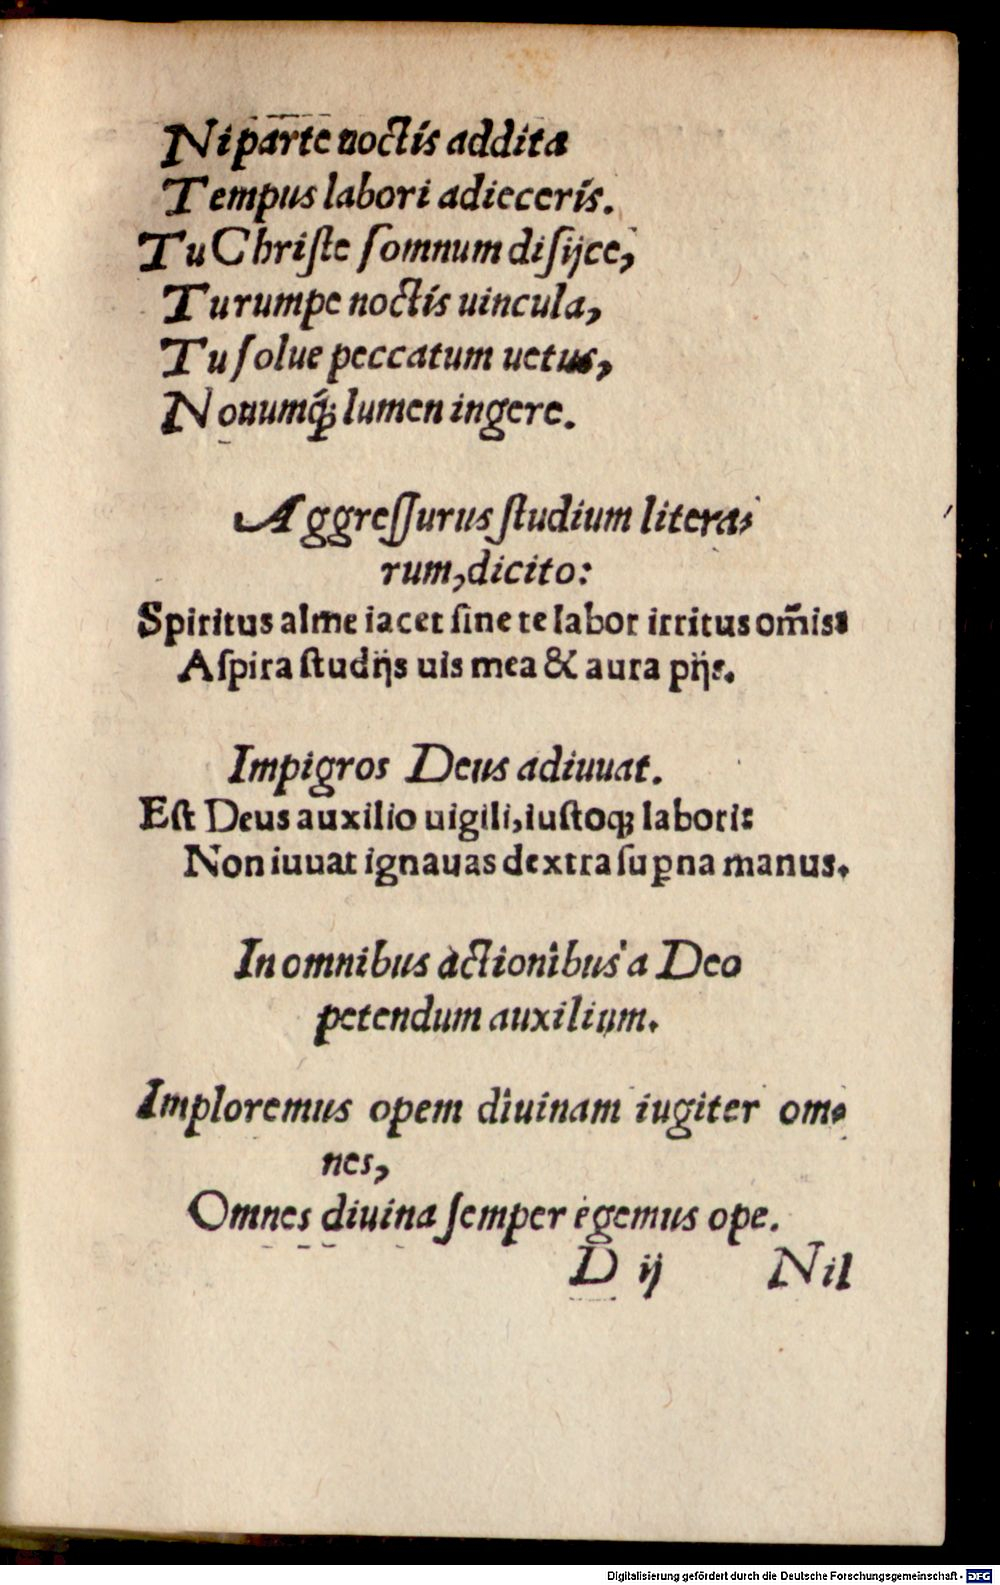 Ni parte noctis addita
Tempus labori adieceris.
Tu Christe ſomnum diſijce,
Tu rumpe noctis uincula,
Tu ſolue peccatum uetus,
Nouumq́; lumen ingere.
Aggreſſurus ſtudium litera-
rum, dicito:
Spiritus alme iacet ſine te labor irritus om̄is:
Aſpira ſtudijs uis mea & aura pijs.
Impigros Deus adiuuat.
Eſt Deus auxilio uigili, iuſtoq; labori:
Non iuuat ignauas dextra ſuꝑna manus.
In omnibus actionibus à Deo
petendum auxilium.
Imploremus opem diuinam iugiter om-
nes,
Omnes diuina ſemper egemus ope.
D ij Nil
Digitalisierung gefördert durch die Deutsche Forschungsgemeinschaft - DFG